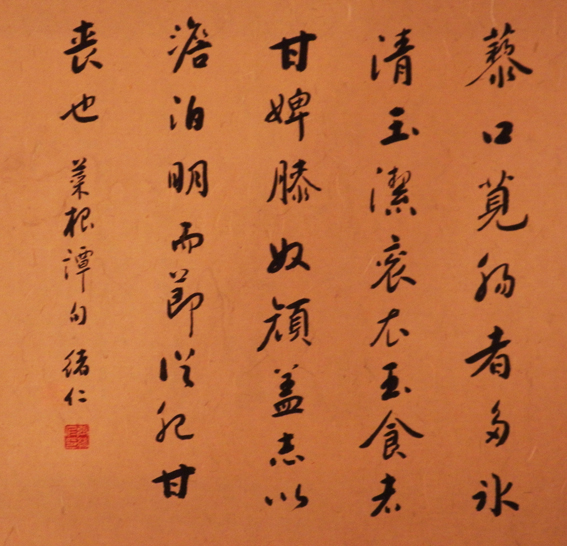 藜口莧腸者多冰
清玉潔袞衣玉食者
甘婢膝奴顏蓋志以
澹泊明而節從肥甘
喪也 菜根譚句 緒仁